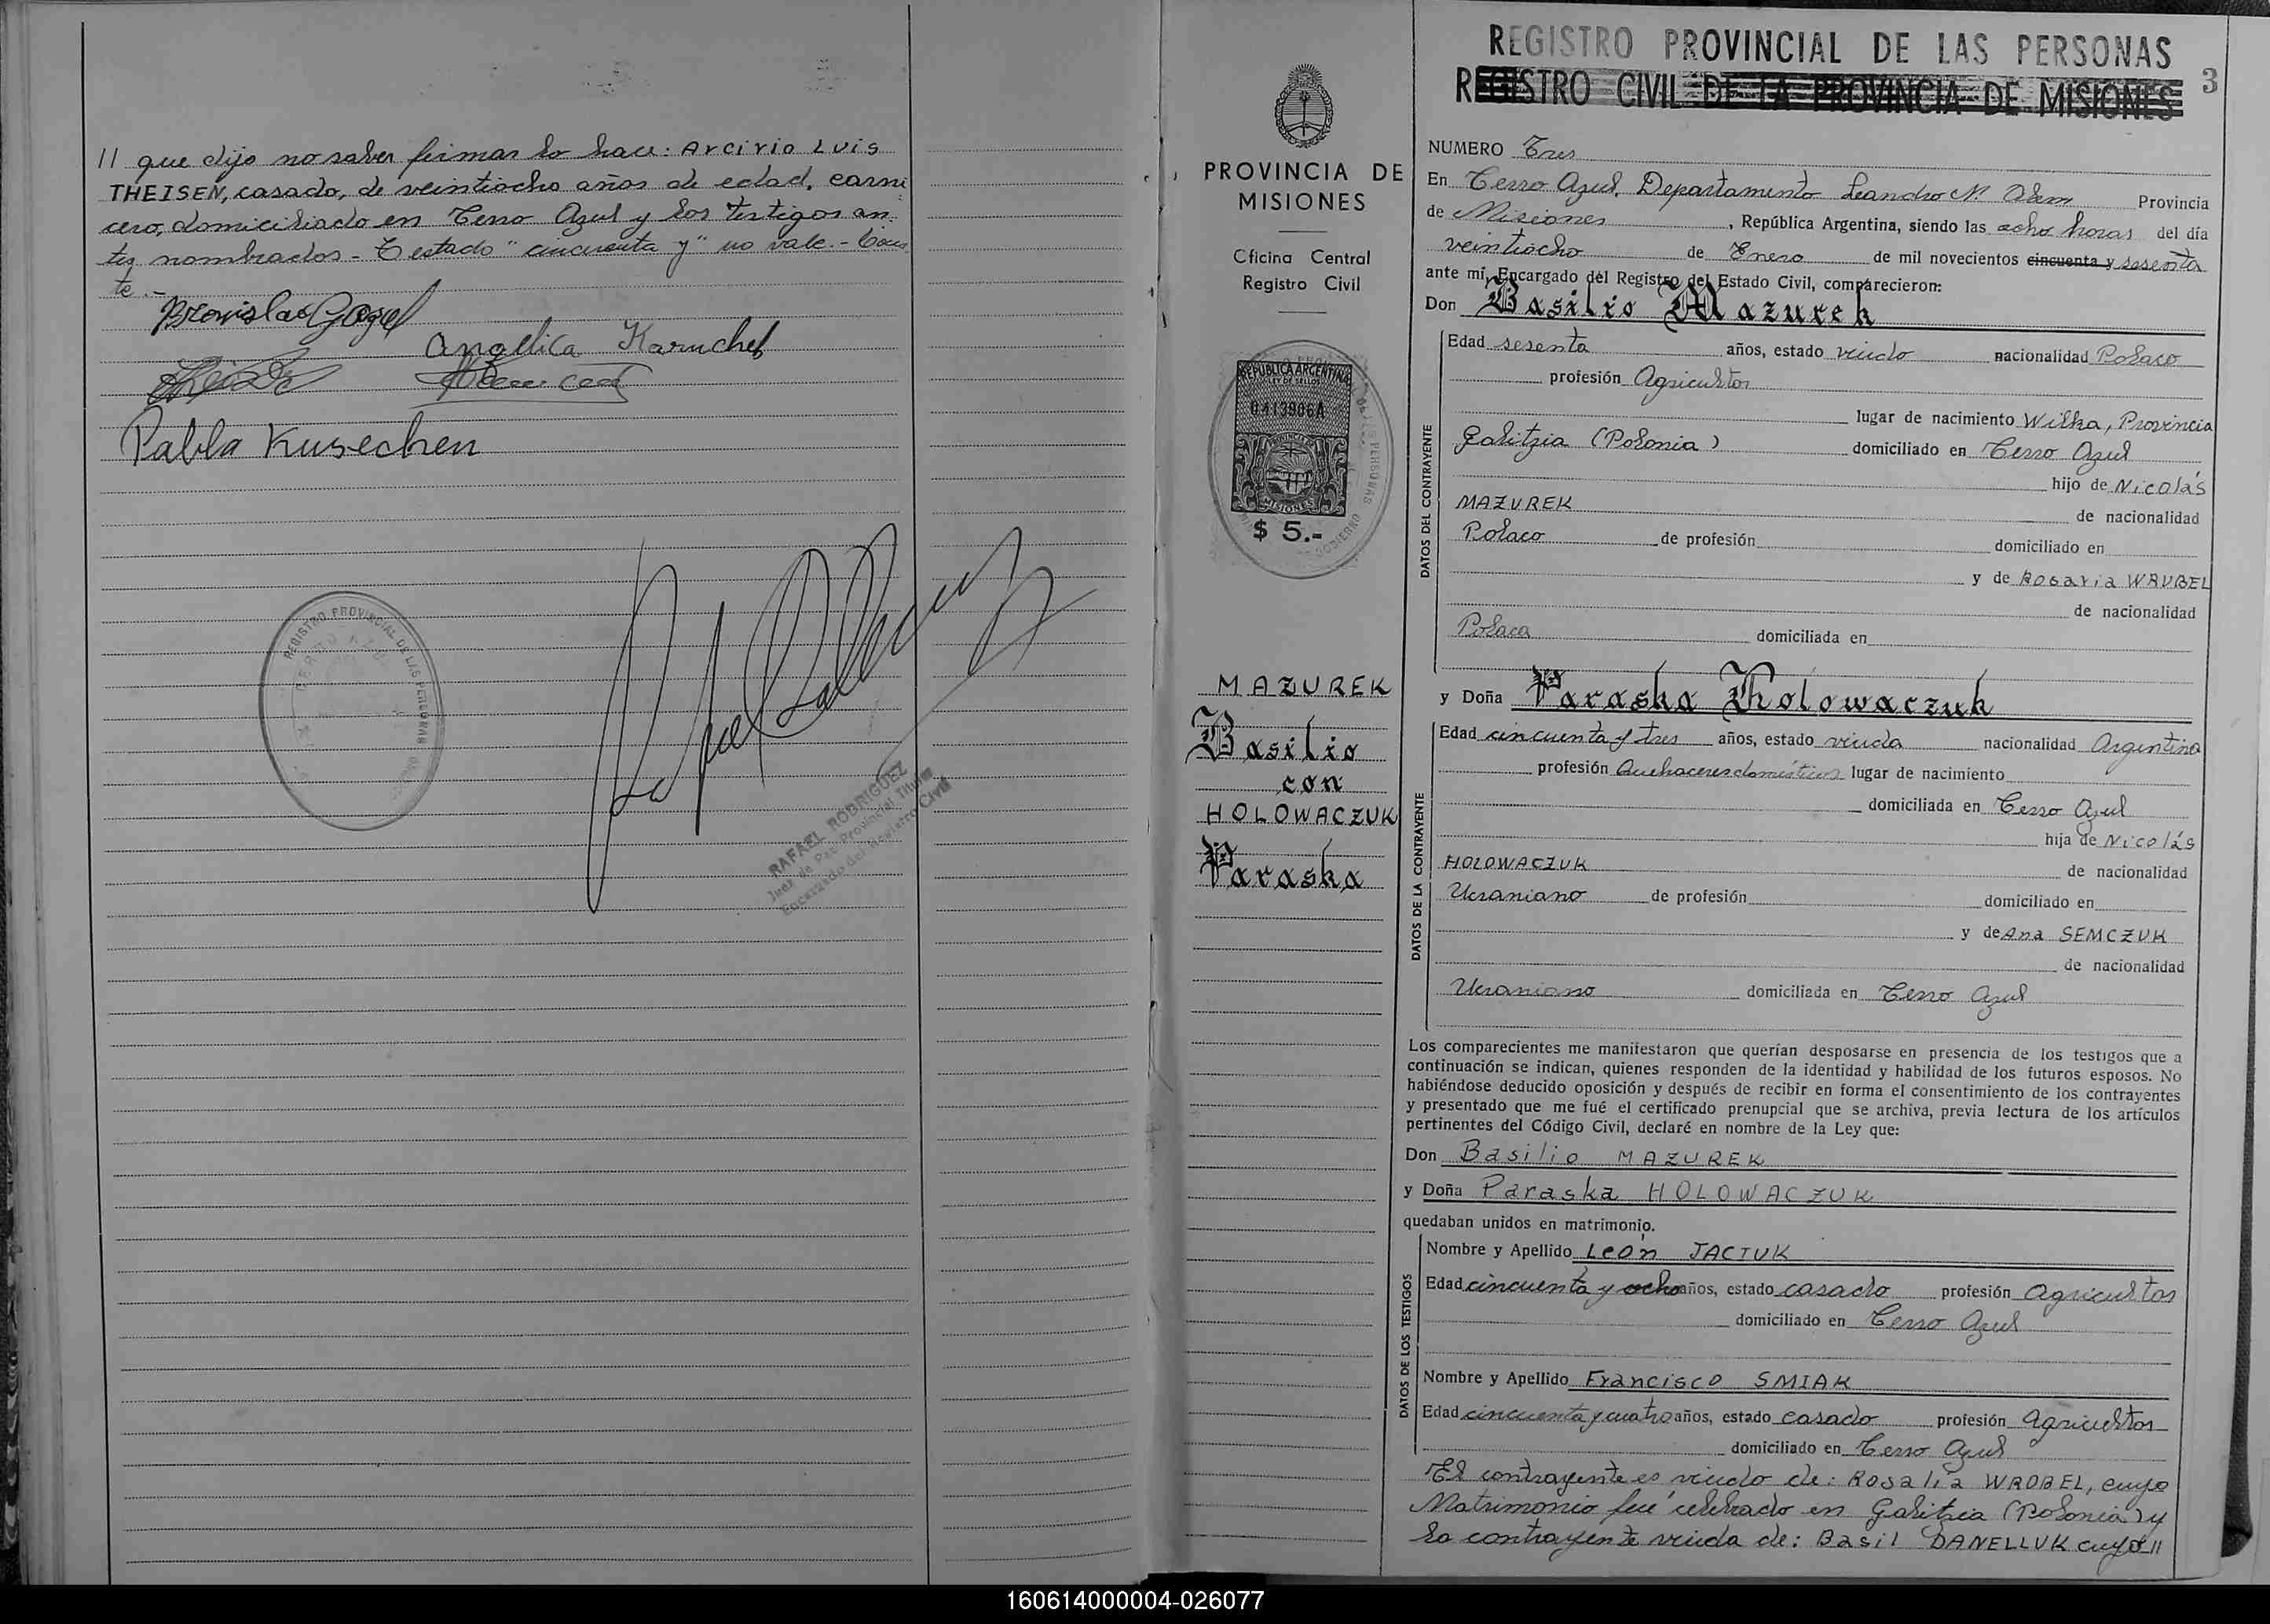 // que dijo no saber firmar lo hace: Arcirio Luis
THEISEN, casado, de veintiocho años de edad, carni
cero, domiciliado en Cerro Azul y los testigos an
tes nombrados - Testado "cincuenta y" no vale. - Cons
te. -
Bronislao Gogol
Angelica Karuchek
Pablo Kusechen
REGISTRO PROVINCIAL DE LAS PERSONAS
CERRO AZUL
RAFAEL RODRIGUEZ
Juez de Paz Provincial Titular
Encargado del Registro Civil
PROVINCIA DE
MISIONES
Oficina Central
Registro Civil
REPUBLICA ARGENTINA
LEY DE SELLOS
0413906A
PROVINCIA DE
MISIONES
$ 5.-
MAZUREK
Basilio
con
HOLOWACZUK
Paraska
REGISTRO PROVINCIAL DE LAS PERSONAS
REGISTRO CIVIL DE LA PROVINCIA DE MISIONES
3
NUMERO Tres
En Cerro Azul, Departamento Leandro N. Alem Provincia
de Misiones, República Argentina, siendo las ocho horas del día
veintiocho de Enero de mil novecientos cincuenta y sesenta
ante mí, Encargado del Registro del Estado Civil, comparecieron:
Don Basilio Mazurek
DATOS DEL CONTRAYENTE
Edad sesenta años, estado viudo nacionalidad Polaco
profesión Agricultor
lugar de nacimiento Wilka, Provincia
Galitzia (Polonia) domiciliado en Cerro Azul
hijo de Nicolás
MAZUREK de nacionalidad
Polaco de profesión domiciliado en
y de Rosaria WRUBEL
de nacionalidad
Polaca domiciliada en
y Doña Paraska Holowaczuk
DATOS DE LA CONTRAYENTE
Edad cincuenta y tres años, estado viuda nacionalidad Argentina
profesión Quehaceres domésticos lugar de nacimiento
domiciliada en Cerro Azul
hija de Nicolás
HOLOWACZUK de nacionalidad
Ucraniano de profesión domiciliado en
y de Ana SEMCZUK
de nacionalidad
Ucraniano domiciliada en Cerro Azul
Los comparecientes me manifestaron que querían desposarse en presencia de los testigos que a
continuación se indican, quienes responden de la identidad y habilidad de los futuros esposos. No
habiéndose deducido oposición y después de recibir en forma el consentimiento de los contrayentes
y presentado que me fué el certificado prenupcial que se archiva, previa lectura de los artículos
pertinentes del Código Civil, declaré en nombre de la Ley que:
Don Basilio MAZUREK
y Doña Paraska HOLOWACZUK
quedaban unidos en matrimonio.
DATOS DE LOS TESTIGOS
Nombre y Apellido León JACIUK
Edad cincuenta y ocho años, estado casado profesión Agricultor
domiciliado en Cerro Azul
Nombre y Apellido Francisco SMIAK
Edad cincuenta y cuatro años, estado casado profesión Agricultor
domiciliado en Cerro Azul
El contrayente es viudo de: Rosalía WROBEL, cuyo
Matrimonio fue celebrado en Galitzia (Polonia) y
la contrayente viuda de: Basil DANELLUK cuyo //
160614000004-026077